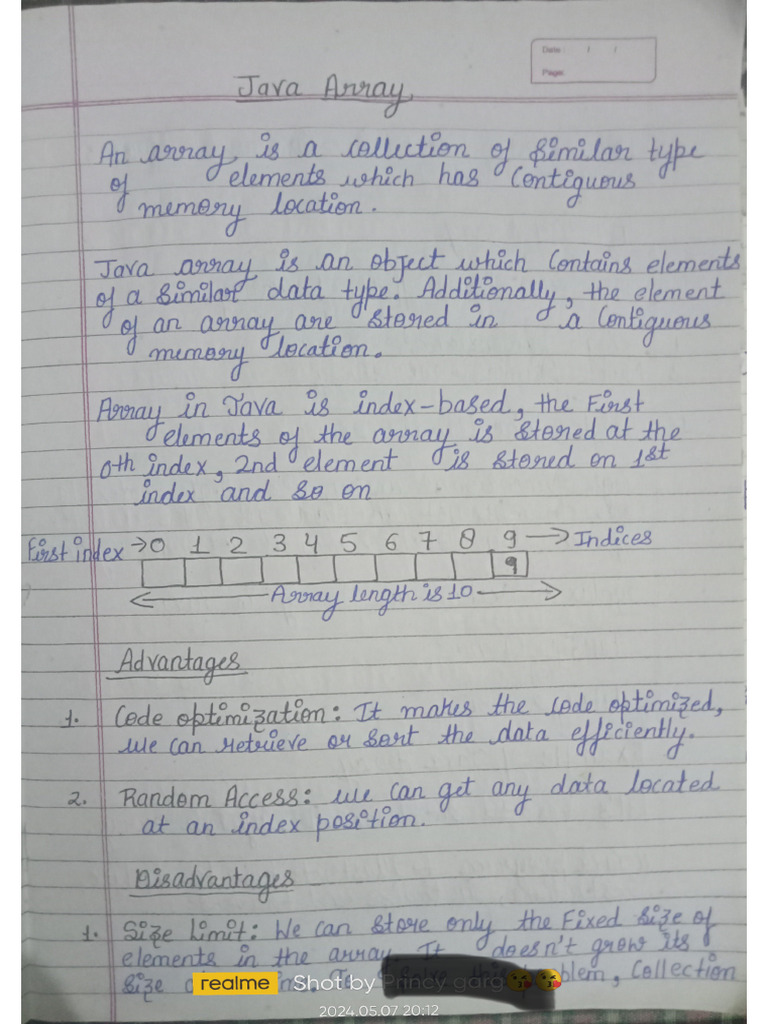 Date: / /
Page:
Java Array
An array is a collection of similar type
of elements which has contiguous
memory location.
Java array is an object which contains elements
of a similar data type. Additionally, the element
of an array are stored in a contiguous
memory location.
Array in Java is index-based, the First
elements of the array is stored at the
0th index, 2nd element is stored on 1st
index and so on
First index → 0 1 2 3 4 5 6 7 8 9 → Indices
9
Array length is 10
Advantages
1. Code optimization: It makes the code optimized,
we can retrieve or sort the data efficiently.
2. Random Access: we can get any data located
at an index position.
Disadvantages
1. Size Limit: We can store only the Fixed size of
elements in the array. It doesn't grow its
size To this Collection
realme Shot by Princy garg😘😘
2024.05.07 20:12